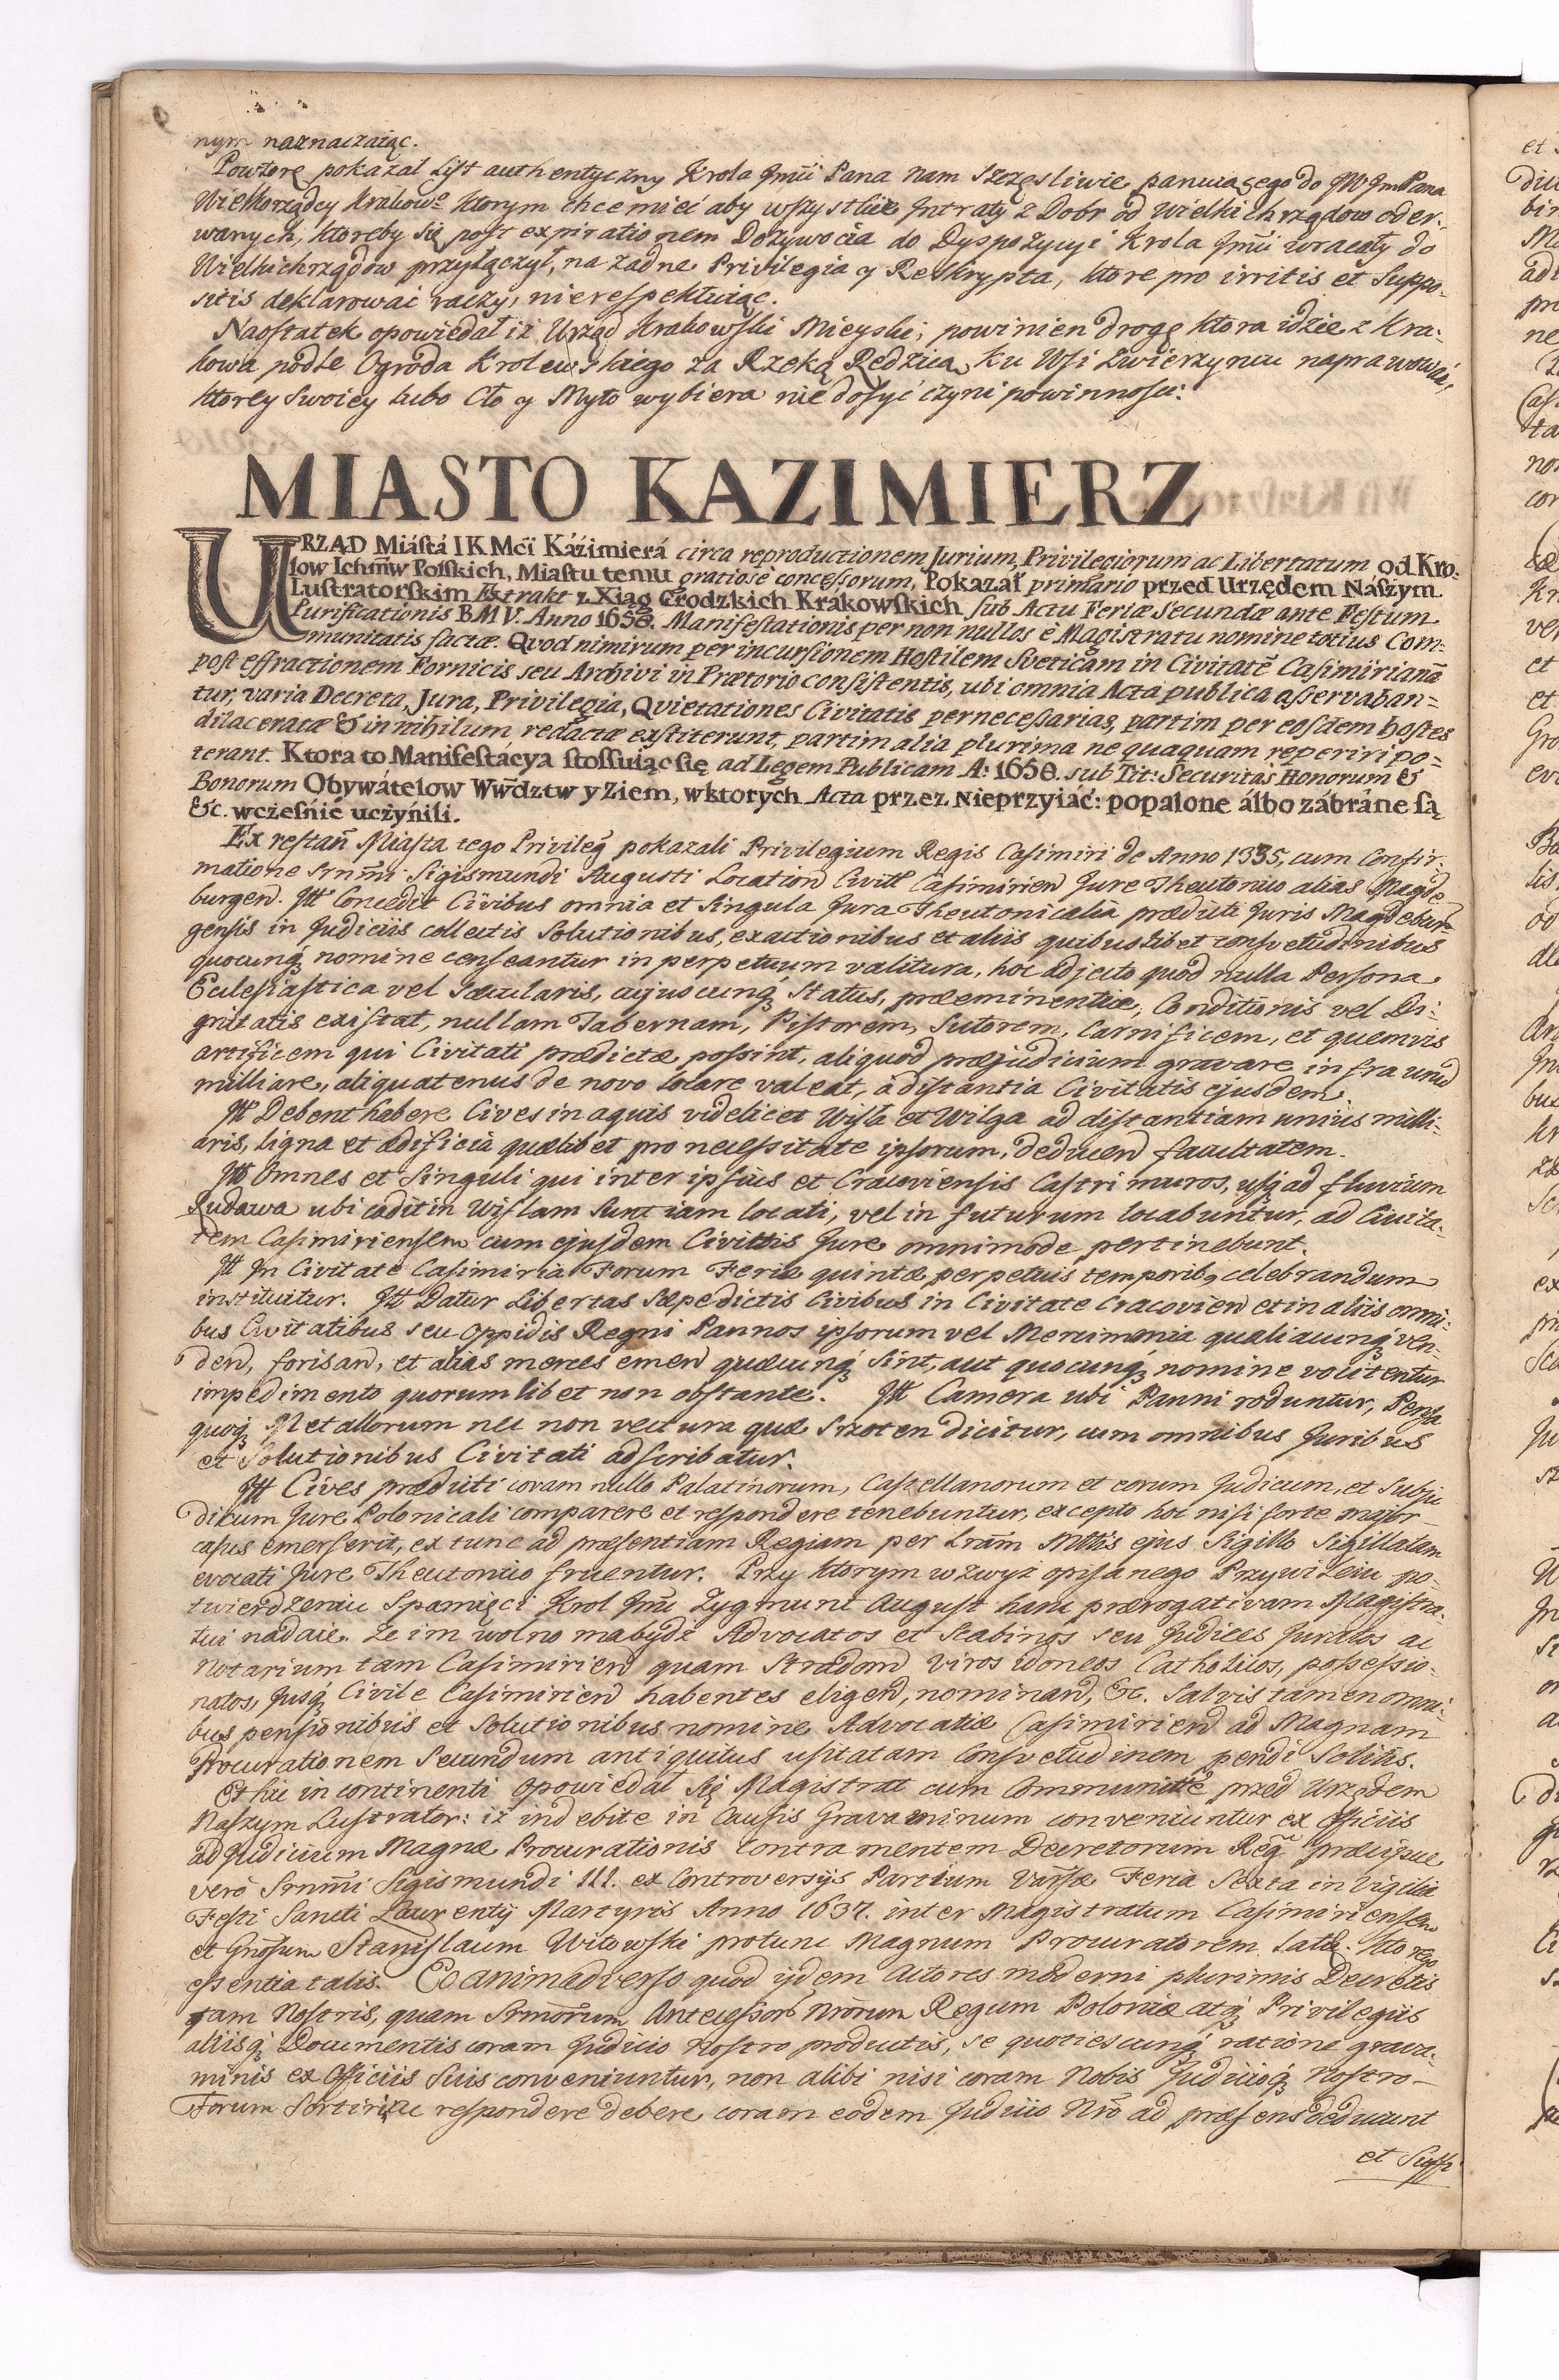 nym naznaczaiąc.
Powtore pokazał List authentyczny Krola Jmći Pana Nam szczęsliwie panuiącego do JW JmPana
Wielkorządcy Krakowº ktorym chce mieć aby wszystkie Intraty z Dobr od Wielkichrządow oder-
wanych, ktoreby się post expirationem Dożywocia do Dyspozycyi Krola Jmći wracały do
Wielkichrządow przyłączył, na żadne Privilegia y Reskrypta, ktore pro irritis et Suppo-
sitis deklarować raczy, nierespektuiąc.
Naostatek opowiedał iż Urząd Krakowski Mieyski, powinien drogę ktora idzie z Kra-
kowa podle Ogroda Krolewskiego za Rzeką Rędzica ku Wsi Zwierzyniu naprawować,
ktorey Swoiey lubo Cło y Myto wybiera nie dosyć czyni powinności.
MIASTO KAZIMIERZ
URZĄD Miástá IKMći Káźimierá circa reproductionem Jurium, Privilegiorum ac Libertatum od Kro-
low Ichmw Polskich, Miastu temu gratiose concessorum, Pokazał primario przed Urzędem Nászym.
Lustratorskim Extrakt z Xiąg Grodzkich Krákowskich sub Actu Feriæ Secundæ ante Festum
Purificationis BMV. Anno 1658. Manifestationis per non nullos è Magistratu nomine totius Com-
munitatis factæ. Quod nimirum per incursionem Hostilem Sveticam in Civitatē Casimirianā
post effractionem Fornicis seu Archivi in Prætorio consistentis, ubi omnia Acta publica asservaban-
tur, varia Decreta, Jura, Privilegia, Qvietationes Civitatis pernecessarias, partim per eosdem hostes
dilaceratæ & in nihilum redactæ exstiterunt, partim alia plurima ne quaquam reperiri po-
terant. Ktora to Manifestácya stossuiąc się ad Legem Publicam A: 1658. sub Tit: Securitas Honorum &
Bonorum Obywátelow Wwdztw y Ziem, wktorych Acta przez Nieprzyiáć: popalone álbo zábráne są
&c. wcześnie uczynili.
Ex restañ Miasta tego Privileg̃ pokazali Privilegium Regis Casimiri de Anno 1335, cum Confir-
matione Srnm̃i Sigismundi Augusti Location Civitt Casimirien Jure Theutonico alias Magde-
burgen. Itt Concedit Civibus omnia et Singula Jura Theutonicalia prædicti Juris Magdebur-
gensis in Judiciis collectis Solutionibus, exactionibus et aliis quibuslibet consvetudinibus
quocunq̃ nomine censeantur in perpetuum valitura, hoc adjecto quod nulla Persona
Ecclesiastica vel sæcularis, cujuscunq̃ Status, præeminentiæ, Conditionis vel Di-
gnitatis existat, nullam Tabernam, Pistorem, Sutorem, Carnificem, et quemvis
artificem qui Civitati prædictæ possint, aliquod præjudicium gravare infra unū
milliare, aliquatenus de novo locare valeat, a distantia Civitatis ejusdem.
Itt Debent habere Cives in aquis videlicet Wisła et Wilga ad distantiam unius milli-
aris, ligna et ædificia quælibet pro necessitate ipsorum, deducen facultatem.
Itt Omnes et Singuli qui inter ipsius et Cracoviensis Castri muros, usq ad fluvium
Rudawa ubi cadit in Wislam Sunt iam locati, vel in futurum locabuntur, ad Civita-
tem Casimiriensem cum ejusdem Civittis Jure omnimode pertinebunt.
Itt In Civitate Casimiria Forum Feriæ quintæ perpetuis temporibq celebrandum
instituitur. Itt Datur Libertas Sæpedictis Civibus in Civitate Cracovien et in aliis omni-
bus Civitatibus seu Oppidis Regni Pannos ipsorum vel Mercimonia qualiacunq̃ ven-
den, forisan, et alias merces emen quæcunq̃ Sint, aut quocunq̃ nomine vocitentur
impedimento quorumlibet non obstante. Itt Camera ubi Panni roduntur, Pensa
quoq̃ Metallorum nec non vectura quæ Srzoten dicitur, cum omnibus Juribus
et Solutionibus Civitati adscribatur.
Itt Cives prædicti coram nullo Palatinorum, Castellanorum et eorum Judicum, et Subju
dicum Jure Polonicali comparere et respondere tenebuntur, excepto hoc nisi forte major
casus emerserit, ex tunc ad præsentiam Regiam per Lram Mttis ejus Sigillo Sigillatam
evocati Jure Theutonico fruentur. Przy ktorym wzwyż opisanego Przywileiu po-
twierdzeniu S pamięci Krol Jmć Zygmunt August hanc prærogativam Magistra-
tui nadaie. Ze im wolno ma bydź Advocatos et Scabinos seu Judices Juratos ac
Notarium tam Casimirien quam Stradom viros idoneos Catholicos, possessio-
natos, Jusq̃ Civile Casimirien habentes eligen, nominan, &c. Salvis tamen omni-
bus pensionibus et Solutionibus nomine Advocatiæ Casimirien ad Magnam
Procurationem secundum antiquitus usitatam Consvetudinem pendi Solitis.
Et hic in continenti opowiedał się Magistrat cum Communitte przed Urzędem
Naszym Lustrator: iż indebite in Causis Gravaminum conveniuntur ex Officiis
ad Judicium Magnæ Procurationis contra mentem Decretorum Reg̃ præcipue
vero Srnm̃i Sigismundi III. ex Controversijs Partium Varsæ Feria Sexta in Vigilia
Festi Sancti Laurentij Martyris Anno 1637. inter Magistratum Casimiriensem
et Gnosum Stanislaum Witowski protunc Magnum Procuratorem Latæ. Ktorego
essentia talis. Eo animadverso quod ijdem Actores moderni plurimis Decretis
tam Nostris, quam Srmorum Antecessor Nrorum Regum Poloniæ atq̃ Privilegiis
aliisq̃ Documentis coram Judicio Nostro productis, se quotiescunq̃ ratione grava-
minis ex Officiis Suis conveniuntur, non alibi nisi coram Nobis Judicioq̃ Nostro
Forum Sortiriqe respondere debere coram eodem Judicio Nrõ ad præsens deducunt
et Suffi